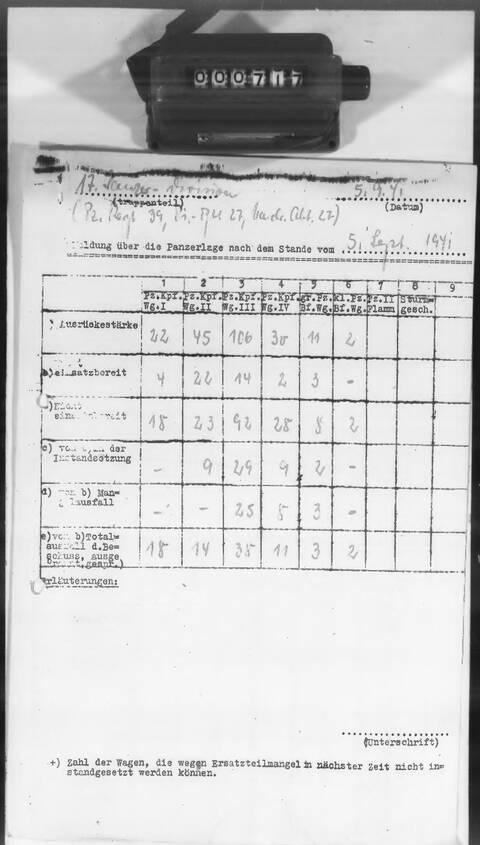 000717
17. Panzer-Division 5.9.41
(Truppenteil) (Datum)
(Pz. Regt 39, Pi.-Btl 27,
Meldung über die Panzerlage nach dem Stande vom 5. Sept. 1941
1 2 3 4 5 6 7 8 9
Pz.Kpf. Pz.Kpf. Pz.Kpf. Pz.Kpf. gr.Pz. kl.Pz. Pz.II Sturm=
Wg.I Wg.II Wg.III Wg.IV Bf.Wg. Bf.Wg. Flamm gesch.
Ausrückestärke 22 45 106 30 11 2
a) einsatzbereit 4 22 14 2 3 -
b) nicht
einsatzbereit 18 23 92 28 8 2
c) von b) in der
Instandsetzung - 9 29 9 2 -
d) von b) Man=
gelausfall - - 25 8 3 -
e) von b) Total=
ausfall d.Be=
schuss, ausge 18 14 38 11 3 2
Erläuterungen:
(Unterschrift)
+) Zahl der Wagen, die wegen Ersatzteilmangel in nächster Zeit nicht in=
standgesetzt werden können.